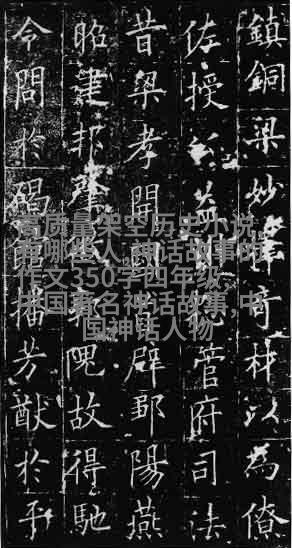 鎮銅梁妙擇奇材以為僚
佐授公益州總管府司法
昔梁孝開國首辟鄒陽燕
昭建邦肇郭隗故得馳
令問於碣館播芳猷於平
高质量架空历史小说,
有哪些人,神话故事的
作文350字四年级,
中国著名神话故事,中
国神话人物